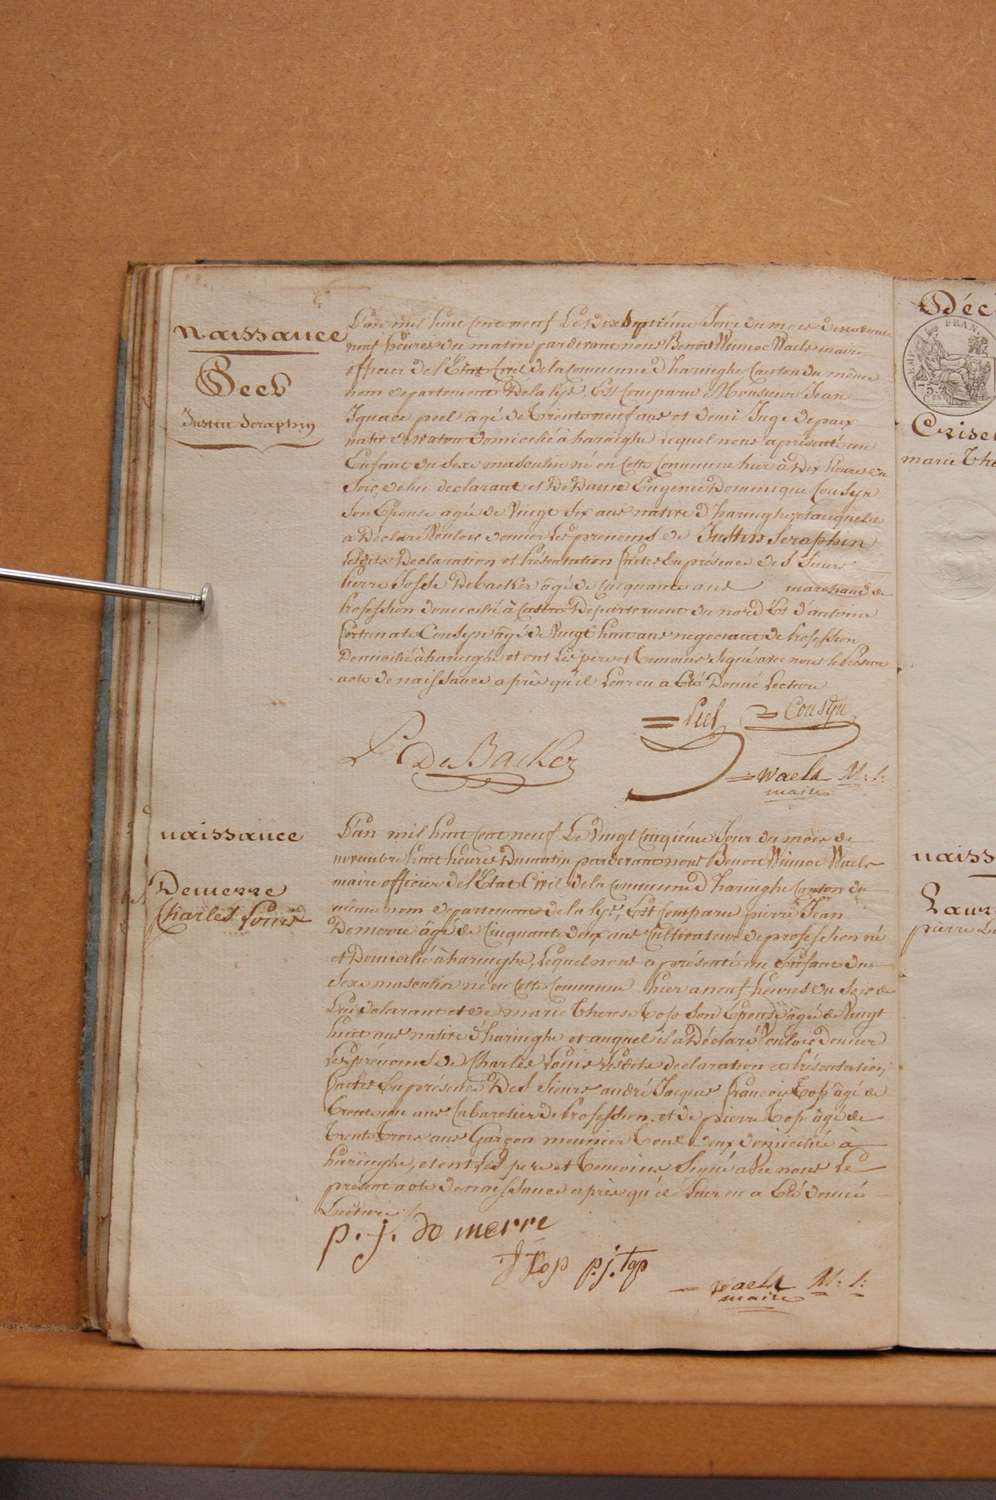 naissance
Peel
Justin Seraphin
L'an mil huit Cent neuf Le Dix Septième Jour du mois de novembre
neuf heures du matin pardevant nous Benoit Winnoc Waels maire
officier de l'Etat Civil de la Commune d'haringhe Canton du même
nom departement De la Lys, Est Comparu Monsieur Jean
Ignace peel agé de Trente neuf ans et demi Juge de paix
natif Domicilié à haringhe lequel nous a présenté un
Enfant du Sexe masculin né en Cette Commune hier à Dix heures du
Soir, de lui declarant et De Dame Eugenie Dominique Cousyn
Son Epouse agée de Vingt Six ans native d'haringhe et auquel il
a Déclaré Vouloir donner Les prenoms de Justin Seraphin
Declaration et Présentation faites En présence des Sieurs
pierre Josse Debacker âgé de Cinquante ans marchand de
Profession domicilié à Département du nord Et d'antoine
fortunate Cousyn âgé de Vingt huit ans negociant de Profession
Domicilié à haringhe et ont Les père et Temoins Signé avec nous le présent
acte de naissance après qu'il Leur en a Eté Donné Lecture
Peel Cousyn
P. De Backer
Waels M: S:
maire
naissance
Demerre
Charles Louis
L'an mil huit Cent neuf Le Vingt Cinquième Jour du mois de
novembre huit heures Du matin pardevant nous Benoit Winnoc Waels
maire officier de l'Etat Civil de la Commune d'haringhe Canton du
même nom departement de la lys, Est Comparu pierre Jean
Demerre âgé de Cinquante deux ans Cultivateur de profession né
et Domicilié à haringhe, Lequel nous a présenté un Enfant du
Sexe masculin né en Cette Commune hier a neuf heures du Soir de
Lui declarant et de marie Therese Top Son Epouse âgée de Vingt
huit ans native d'haringhe et auquel il a Déclaré Vouloir Donner
Les prenoms de Charles Louis declaration et Présentation
faites En présence Des Sieurs andré Jacques François Top âgé de
ans Cabaretier de Profession, et de pierre Top âgé de
Trente Trois ans Garçon meunier Tous deux domicilié à
haringhe, et ont Les père et Temoins Signé avec nous Le
présent acte de naissance après qu'il Leur en a Eté donné
Lecture
p. j. de merre
Top p. j. Top
Waels M: S:
maire
Déc
FRAN
Crise
marie The
naiss
Laur
pierre L